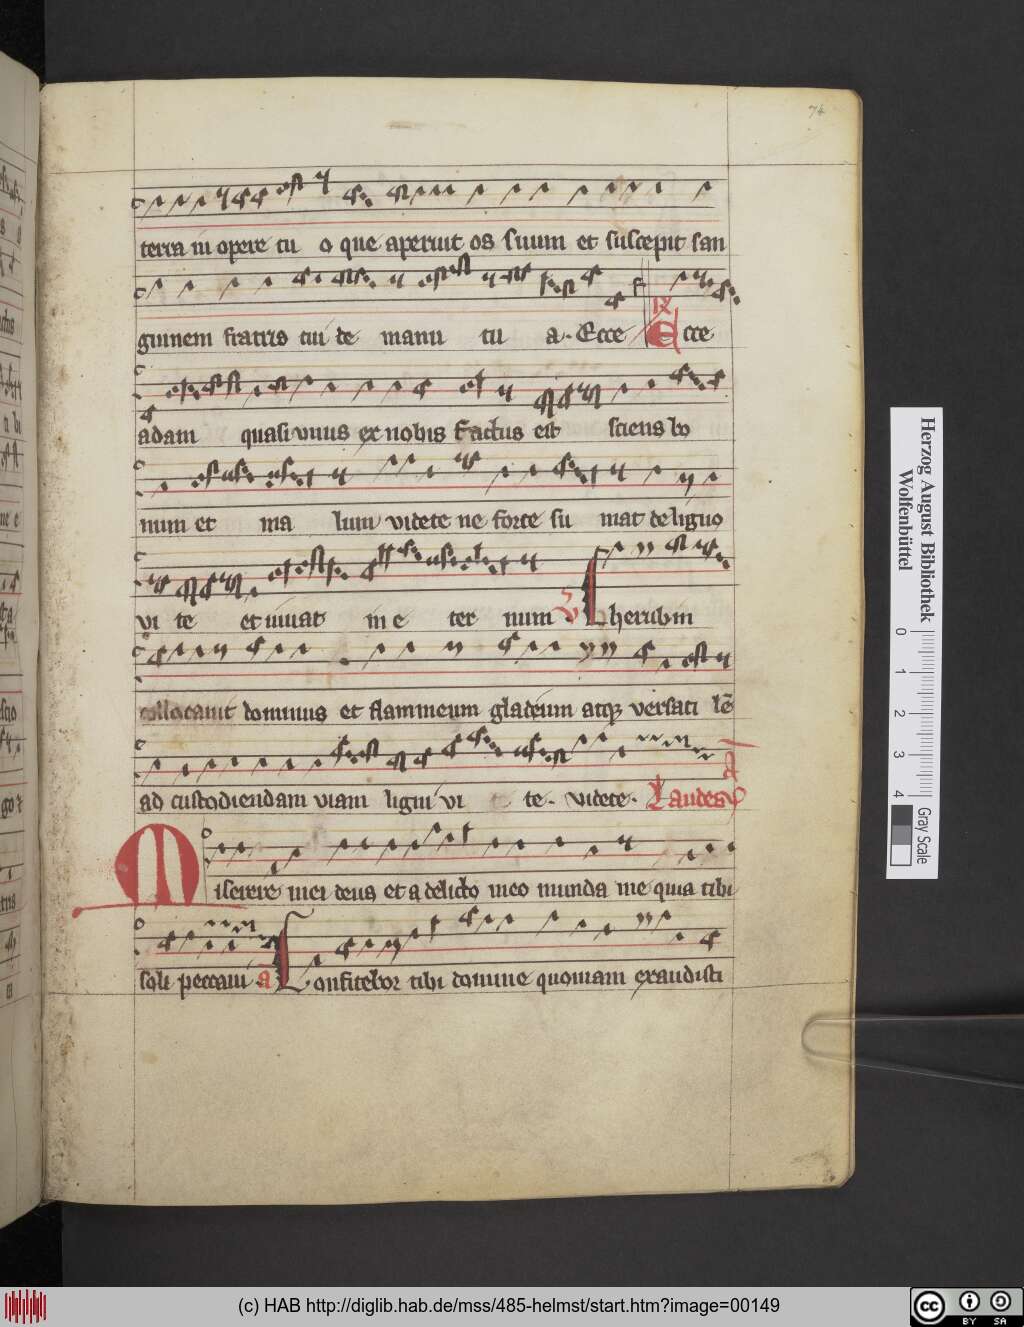 74
terra in opere tu o que aperuit os suum et suscepit san
guinem fratris tui de manu tu a. Ecce R Ecce
adam quasi unus ex nobis factus est sciens bo
num et ma lum videte ne forte su mat de ligno
vi te et vivat in e ter num V Cherubin
collocavit dominus et flammeum gladeum atq versati lē
ad custodiendam viam ligni vi te. videte. Laudes
Miserere mei deus et a delicto meo munda me quia tibi
soli peccavi a Confitebor tibi domine quoniam exaudisti
Herzog August Bibliothek
Wolfenbüttel
0 1 2 3 4
Gray Scale
(c) HAB http://diglib.hab.de/mss/485-helmst/start.htm?image=00149
cc BY SA